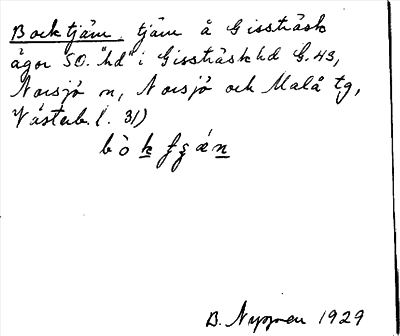 Bocktjärn, tjärn å Gissträsk
ägor SO. "hd" i Gissträsk hd G.43,
Norsjö sn, Norsjö och Malå tg,
Västerb. l. 31)
B. Nyman 1929